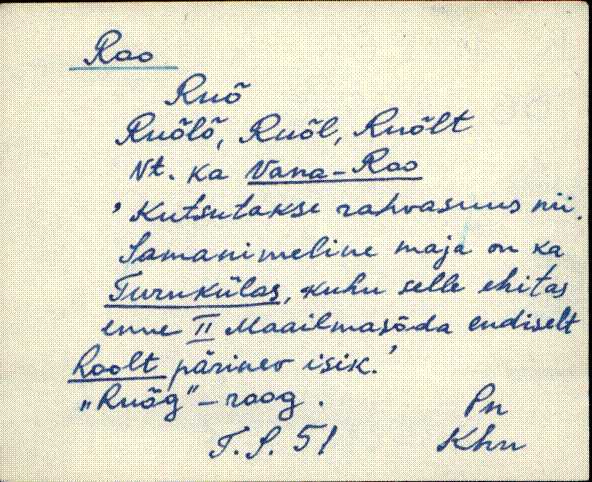 Rao
Ruõ
Ruõlõ, Ruõl, Ruõlt
Vt. ka Vana-Rao
'Kutsutakse rahvasuus nii.
Samanimeline maja on ka
Turnkülas, kuhu selle ehitas
enne II Maailmasõda endiselt
Roolt pärinev isik.'
„Ruõg" - roog.
Pn
T. S. 51 Khn